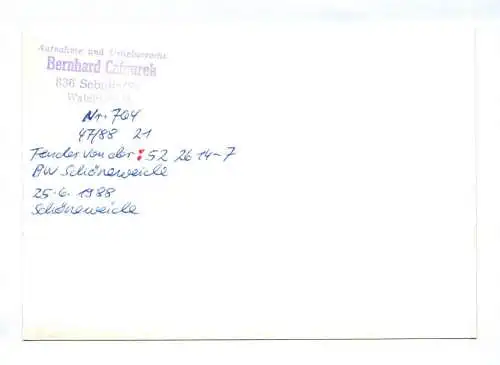 Aufnahme und Urheberrecht
Bernhard
836
Nr. 704
47/88 21
Tender von der : 52 2614-7
BW Schöneweide
25.6.1988
Schöneweide